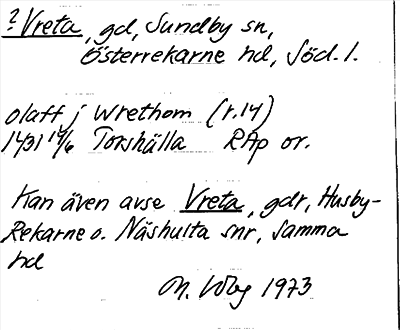 ? Vreta, gd, Sundby sn,
Österrekarne hd, Söd. l.
olaff j wrethom (r. 14)
1431 14/6 Torshälla RAp or.
Kan även avse Vreta, gdr, Husby-
Rekarne o. Näshulta snr, samma
hd
M. Wbg 1973